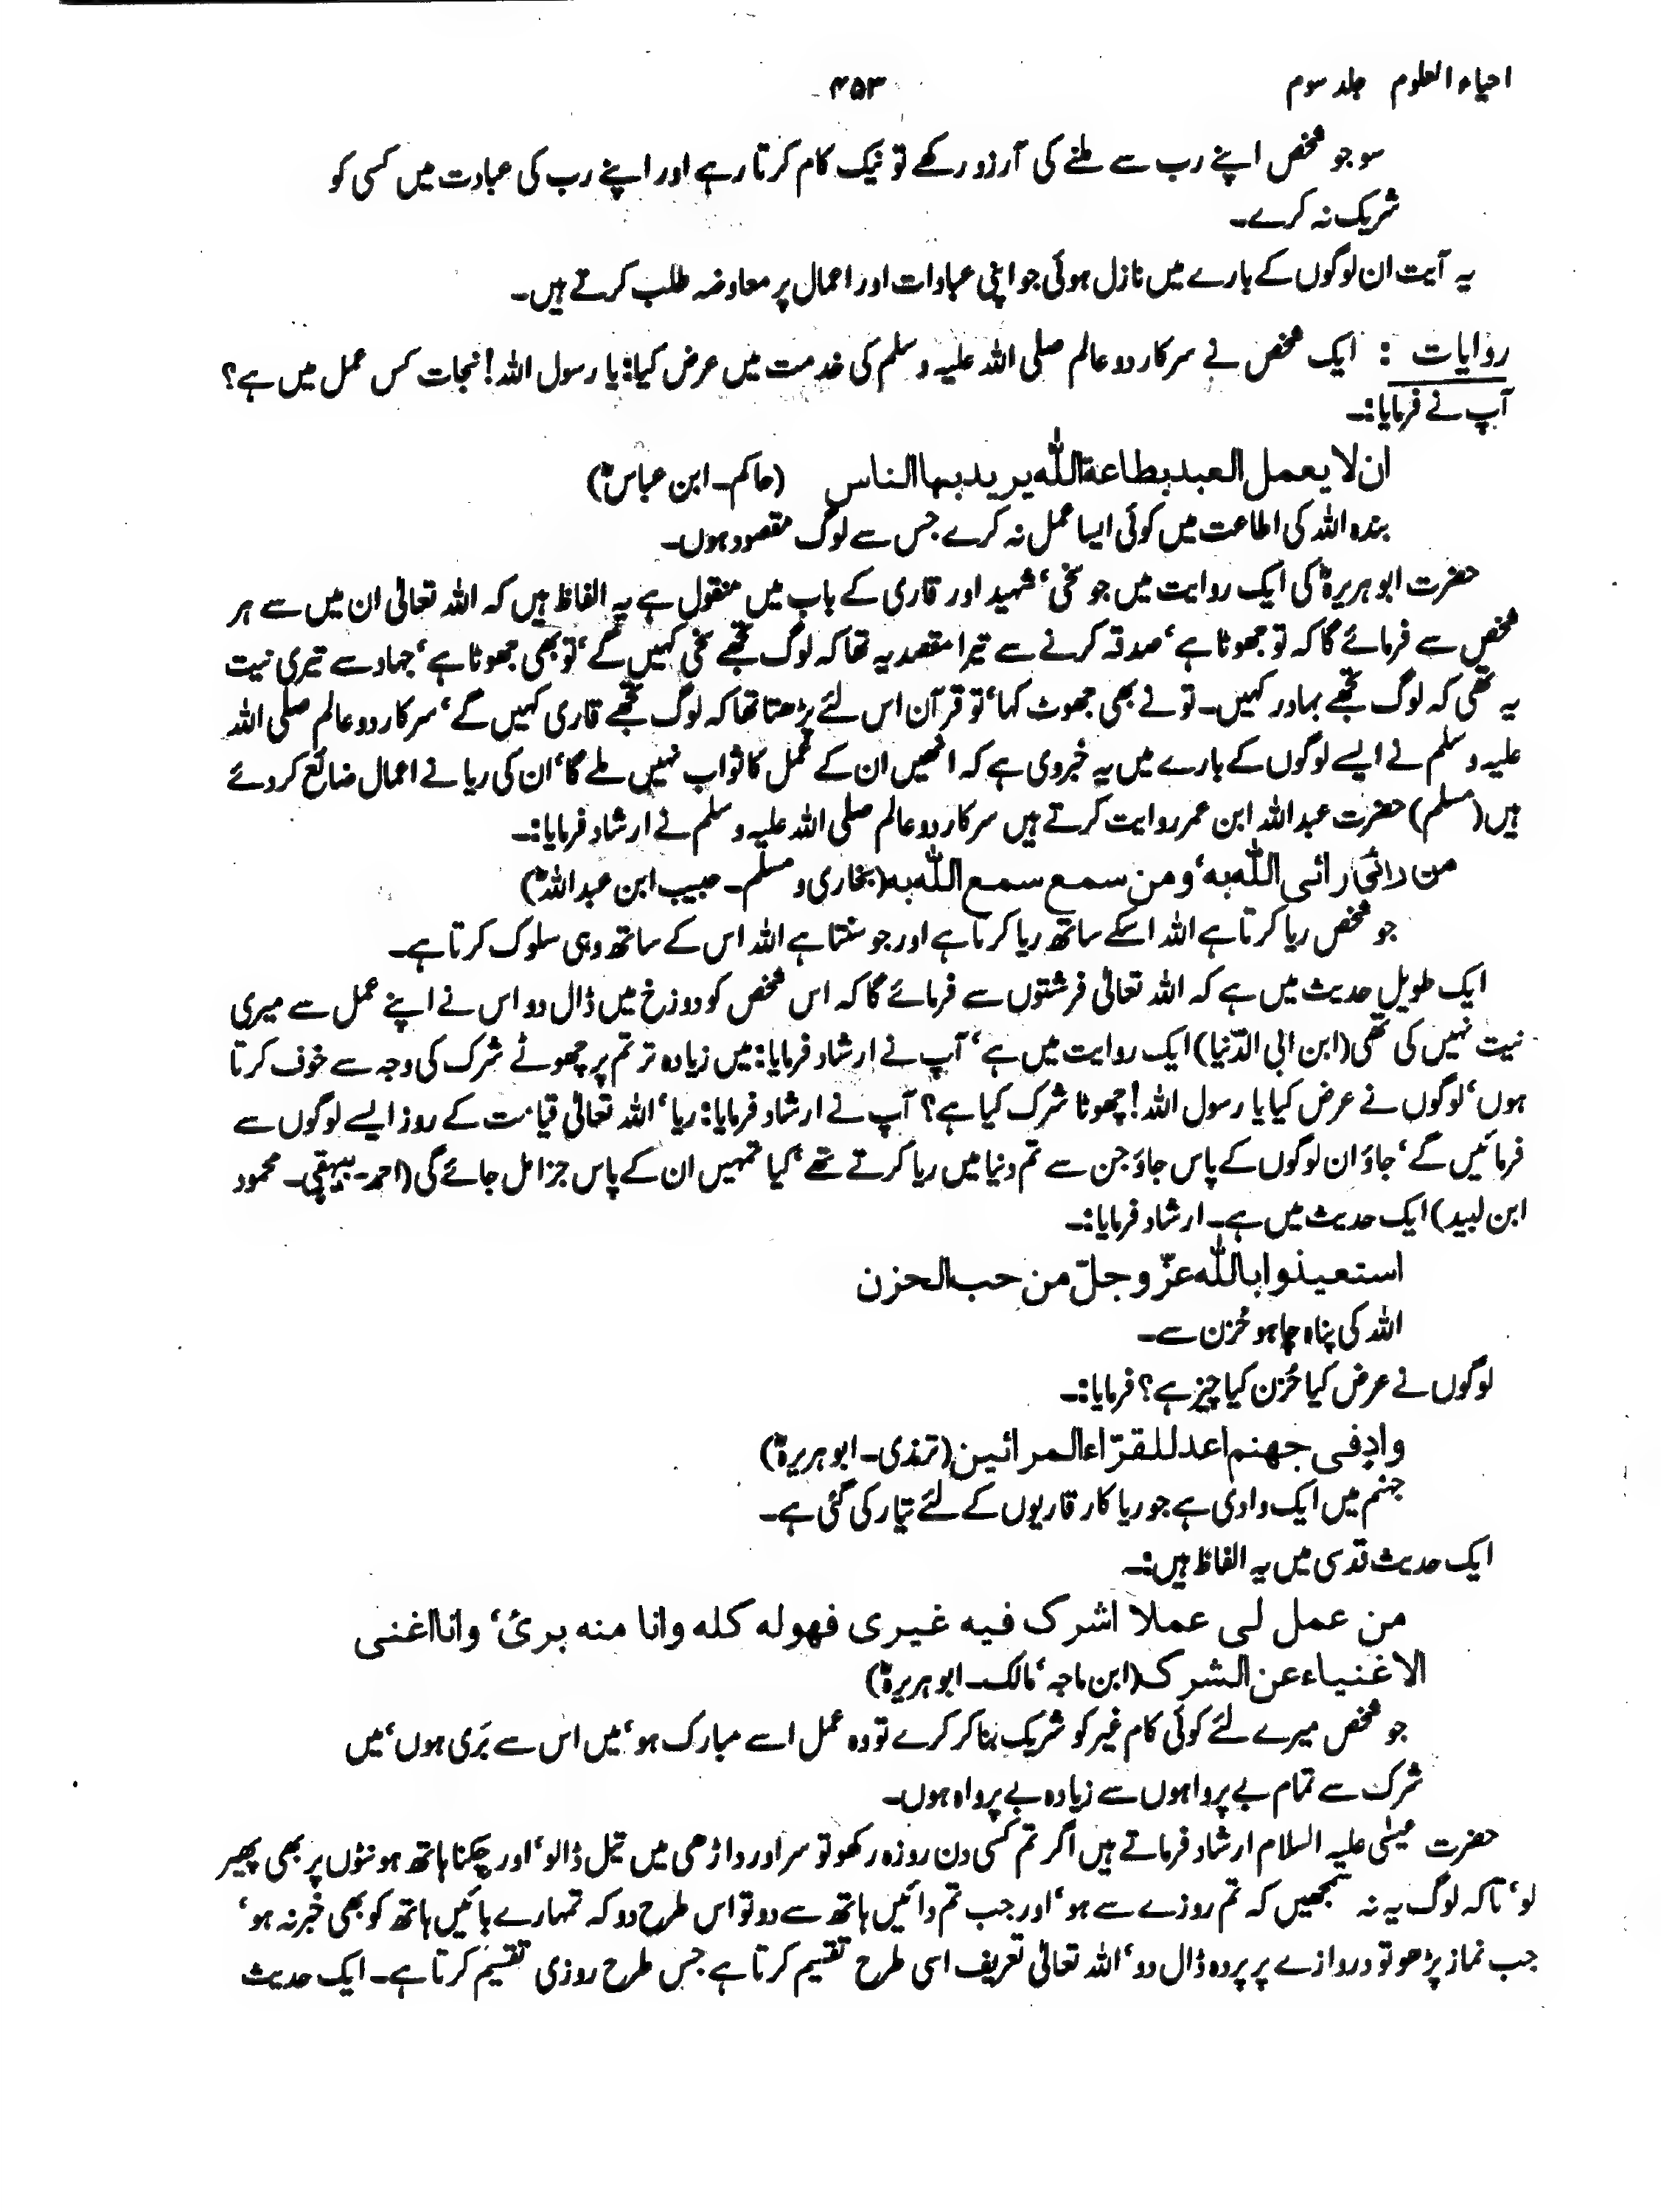 احیاء العلوم جلد سوم
۴۵۳
سو جو شخص اپنے رب سے ملنے کی آرزو رکھے تو نیک کام کرتا رہے اور اپنے رب کی عبادت میں کسی کو
شریک نہ کرے۔
یہ آیت ان لوگوں کے بارے میں نازل ہوئی جو اپنی عبادات اور اعمال پر معاوضہ طلب کرتے ہیں۔
روایات : ایک شخص نے سرکار دو عالم صلی اللہ علیہ وسلم کی خدمت میں عرض کیا: یا رسول اللہ! نجات کس عمل میں ہے؟
آپ نے فرمایا:۔
ان لا یعمل العبد بطاعة اللّٰه یرید بہا الناس (حاکم۔ ابن عباسؓ)
بندہ اللہ کی اطاعت میں کوئی ایسا عمل نہ کرے جس سے لوگ مقصود ہوں۔
حضرت ابو ہریرہؓ کی ایک روایت میں جو سخی‘ شہید اور قاری کے باب میں منقول ہے یہ الفاظ ہیں کہ اللہ تعالٰی ان میں سے ہر
شخص سے فرمائے گا کہ تو جھوٹا ہے‘ صدقہ کرنے سے تیرا مقصد یہ تھا کہ لوگ تجھے سخی کہیں گے‘ تو بھی جھوٹا ہے‘ جہاد سے تیری نیت
یہ تھی کہ لوگ تجھے بہادر کہیں۔ تو نے بھی جھوٹ کہا‘ تو قرآن اس لئے پڑھتا تھا کہ لوگ تجھے قاری کہیں گے‘ سرکار دو عالم صلی اللہ
علیہ وسلم نے ایسے لوگوں کے بارے میں یہ خبر دی ہے کہ انھیں ان کے عمل کا ثواب نہیں ملے گا‘ ان کی ریا نے اعمال ضائع کر دئے
ہیں (مسلم) حضرت عبد اللہ ابن عمر روایت کرتے ہیں سرکار دو عالم صلی اللہ علیہ وسلم نے ارشاد فرمایا:۔
من رائی رائی اللّٰه بہ‘ ومن سمع سمع اللّٰه بہ (بخاری و مسلم۔ حبیب ابن عبد اللہؓ)
جو شخص ریا کرتا ہے اللہ اسکے ساتھ ریا کرتا ہے اور جو سنتا ہے اللہ اس کے ساتھ وہی سلوک کرتا ہے۔
ایک طویل حدیث میں ہے کہ اللہ تعالٰی فرشتوں سے فرمائے گا کہ اس شخص کو دوزخ میں ڈال دو اس نے اپنے عمل سے میری
نیت نہیں کی تھی (ابن ابی الدّنیا) ایک روایت میں ہے‘ آپ نے ارشاد فرمایا: میں زیادہ تر تم پر چھوٹے شرک کی وجہ سے خوف کرتا
ہوں‘ لوگوں نے عرض کیا یا رسول اللہ! چھوٹا شرک کیا ہے؟ آپ نے ارشاد فرمایا: ریا‘ اللہ تعالٰی قیامت کے روز ایسے لوگوں سے
فرمائیں گے‘ جاؤ ان لوگوں کے پاس جاؤ جن سے تم دنیا میں ریا کرتے تھے‘ کیا تمہیں ان کے پاس جزا مل جائے گی (احمد۔ بیہقی۔ محمود
ابن لبید) ایک حدیث میں ہے۔ ارشاد فرمایا:۔
استعیذوا باللّٰه عزّوجلّ من حب الحزن
اللہ کی پناہ چاہو حُزن سے۔
لوگوں نے عرض کیا حُزن کیا چیز ہے؟ فرمایا:۔
وادٍ فی جہنم اعد للقرّاء المرائین (ترمذی۔ ابو ہریرہؓ)
جہنم میں ایک وادی ہے جو ریا کار قاریوں کے لئے تیار کی گئی ہے۔
ایک حدیث قدسی میں یہ الفاظ ہیں:۔
من عمل لی عملا اشرک فیہ غیری فہو لہ کلہ وانا منہ بریٔ‘ وانا اغنی
الاغنیاء عن الشرک (ابن ماجہ‘ مالک۔ ابو ہریرہؓ)
جو شخص میرے لئے کوئی کام غیر کو شریک بنا کر کرے تو وہ عمل اسے مبارک ہو‘ میں اس سے بَری ہوں‘ میں
شرک سے تمام بے پرواہوں سے زیادہ بے پرواہ ہوں۔
حضرت عیسٰی علیہ السلام ارشاد فرماتے ہیں اگر تم کسی دن روزہ رکھو تو سر اور داڑھی میں تیل ڈالو‘ اور چکنا ہاتھ ہونٹوں پر بھی پھیر
لو‘ تاکہ لوگ یہ نہ سمجھیں کہ تم روزے سے ہو‘ اور جب تم دائیں ہاتھ سے دو تو اس طرح دو کہ تمہارے بائیں ہاتھ کو بھی خبر نہ ہو‘
جب نماز پڑھو تو دروازے پر پردہ ڈال دو‘ اللہ تعالٰی تعریف اسی طرح تقسیم کرتا ہے جس طرح روزی تقسیم کرتا ہے۔ ایک حدیث